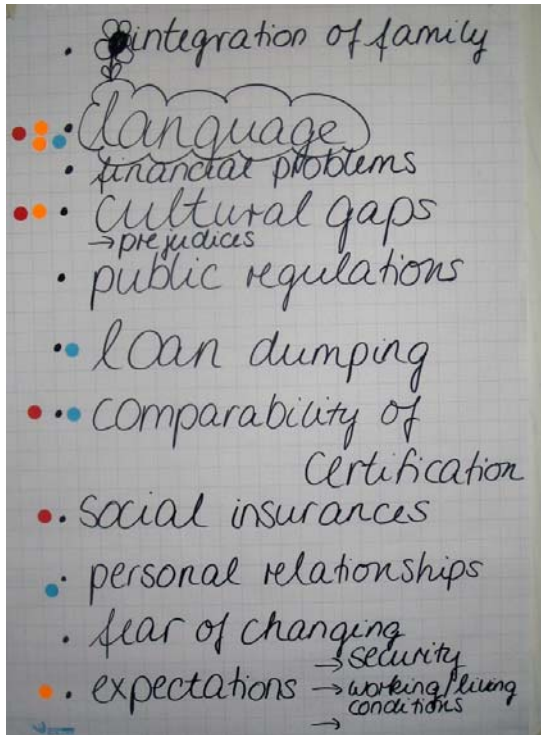 • integration of family
• language
• financial problems
• cultural gaps
→ prejudices
• public regulations
• loan dumping
• comparability of
certification
• social insurances
• personal relationships
• fear of changing
→ security
• expectations → working/living
conditions
→